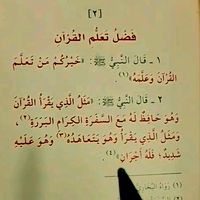 [٢]
فَضْلُ تَعَلُّمِ القُرْآنِ
١ - قَالَ النَّبِيُّ ﷺ: «خَيْرُكُمْ مَنْ تَعَلَّمَ
القُرْآنَ وَعَلَّمَهُ»(١).
٢ - قَالَ النَّبِيُّ ﷺ: «مَثَلُ الَّذِي يَقْرَأُ القُرْآنَ
وَهُوَ حَافِظٌ لَهُ مَعَ السَّفَرَةِ الكِرَامِ البَرَرَةِ(٢)،
وَمَثَلُ الَّذِي يَقْرَأُ وَهُوَ يَتَعَاهَدُهُ(٣) وَهُوَ عَلَيْهِ
شَدِيدٌ؛ فَلَهُ أَجْرَانِ»(٤).
(١) رَوَاهُ البُخَارِيُّ